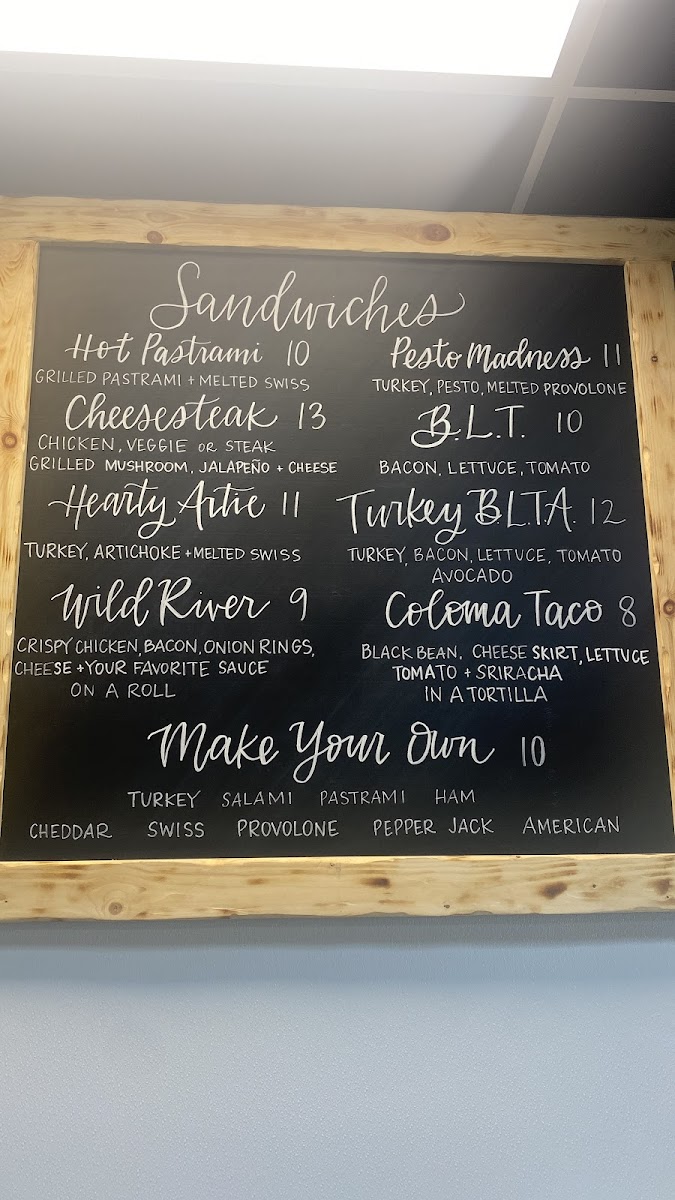 Sandwiches
Hot Pastrami 10
GRILLED PASTRAMI + MELTED SWISS
Cheesesteak 13
CHICKEN, VEGGIE OR STEAK
GRILLED MUSHROOM, JALAPEÑO + CHEESE
Hearty Artie 11
TURKEY, ARTICHOKE + MELTED SWISS
Wild River 9
CRISPY CHICKEN, BACON, ONION RINGS,
CHEESE + YOUR FAVORITE SAUCE
ON A ROLL
Pesto Madness 11
TURKEY, PESTO, MELTED PROVOLONE
B.L.T. 10
BACON, LETTUCE, TOMATO
Turkey B.L.T.A. 12
TURKEY, BACON, LETTUCE, TOMATO
AVOCADO
Coloma Taco 8
BLACK BEAN, CHEESE SKIRT, LETTUCE
TOMATO + SRIRACHA
IN A TORTILLA
Make Your Own 10
TURKEY SALAMI PASTRAMI HAM
CHEDDAR SWISS PROVOLONE PEPPER JACK AMERICAN